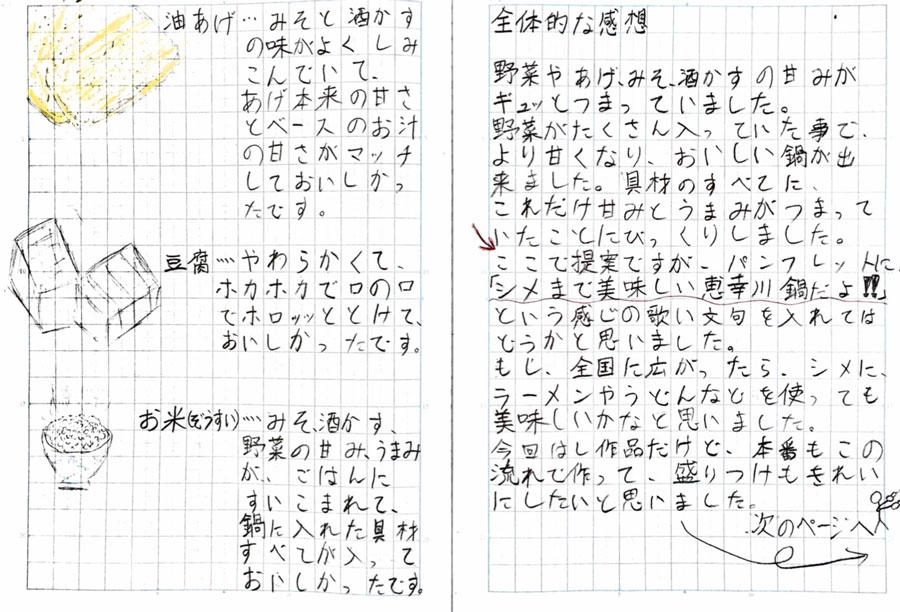 油あげ…みそと酒かす
の味がよくしみ
こんでいて、
あげ本来の甘さ
とベースのお汁
の甘さがマッチ
しておいしかっ
たです。
豆腐…やわらかくて、
ホカホカで口の中
でホロッととけて、
おいしかったです。
お米(ぞうすい)…みそ、酒かす、
野菜の甘み、うまみ
が、ごはんに
すいこまれて、
鍋に入れた具材
すべてが入って
おいしかったです。
全体的な感想
野菜やあげ、みそ、酒かすの甘みが
ギュッとつまっていました。
野菜がたくさん入っていた事で、
より甘くなり、おいしい鍋が出
来ました。具材のすべてに、
これだけ甘みとうまみがつまって
いたことにびっくりしました。
ここで提実ですが、パンフレットに、
「シメまで美味しい恵幸川鍋だよ!!」
という感じの歌い文句を入れては
どうかと思いました。
もし、全国に広がったら、シメに、
ラーメンやうどんなどを使っても
美味しいかなと思いました。
今回はし作品だけど、本番もこの
流れで作って、盛りつけもきれい
にしたいと思いました。
次のページへ